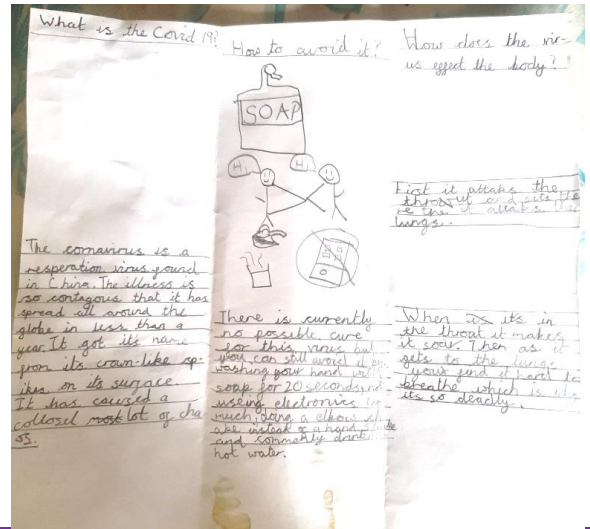 What is the Covid 19?
The cornavirus is a
resperation virus found
in China. The illness is
so contagous that it has
spread all around the
globe in less than a
year. It got its name
from its crown-like sp-
ikes on its surface.
It has caused a
collosel most lot of cha
os.
How to avoid it?
SOAP
Hi
Hi
There is currently
no possible cure
for this virus but
you can still avoid it by
washing your hand
soap for 20 seconds
useing electronics
much, doing a elbow sh-
ake insted of a hand
and commenly drink
hot water.
How does the vir-
us effect the body?
First it attaks the
throwt and
attaks the
lungs.
When its in
the throat it makes
it soar. Then as it
gets to the lungs
your find it hard to
breathe which is
its so deadly.